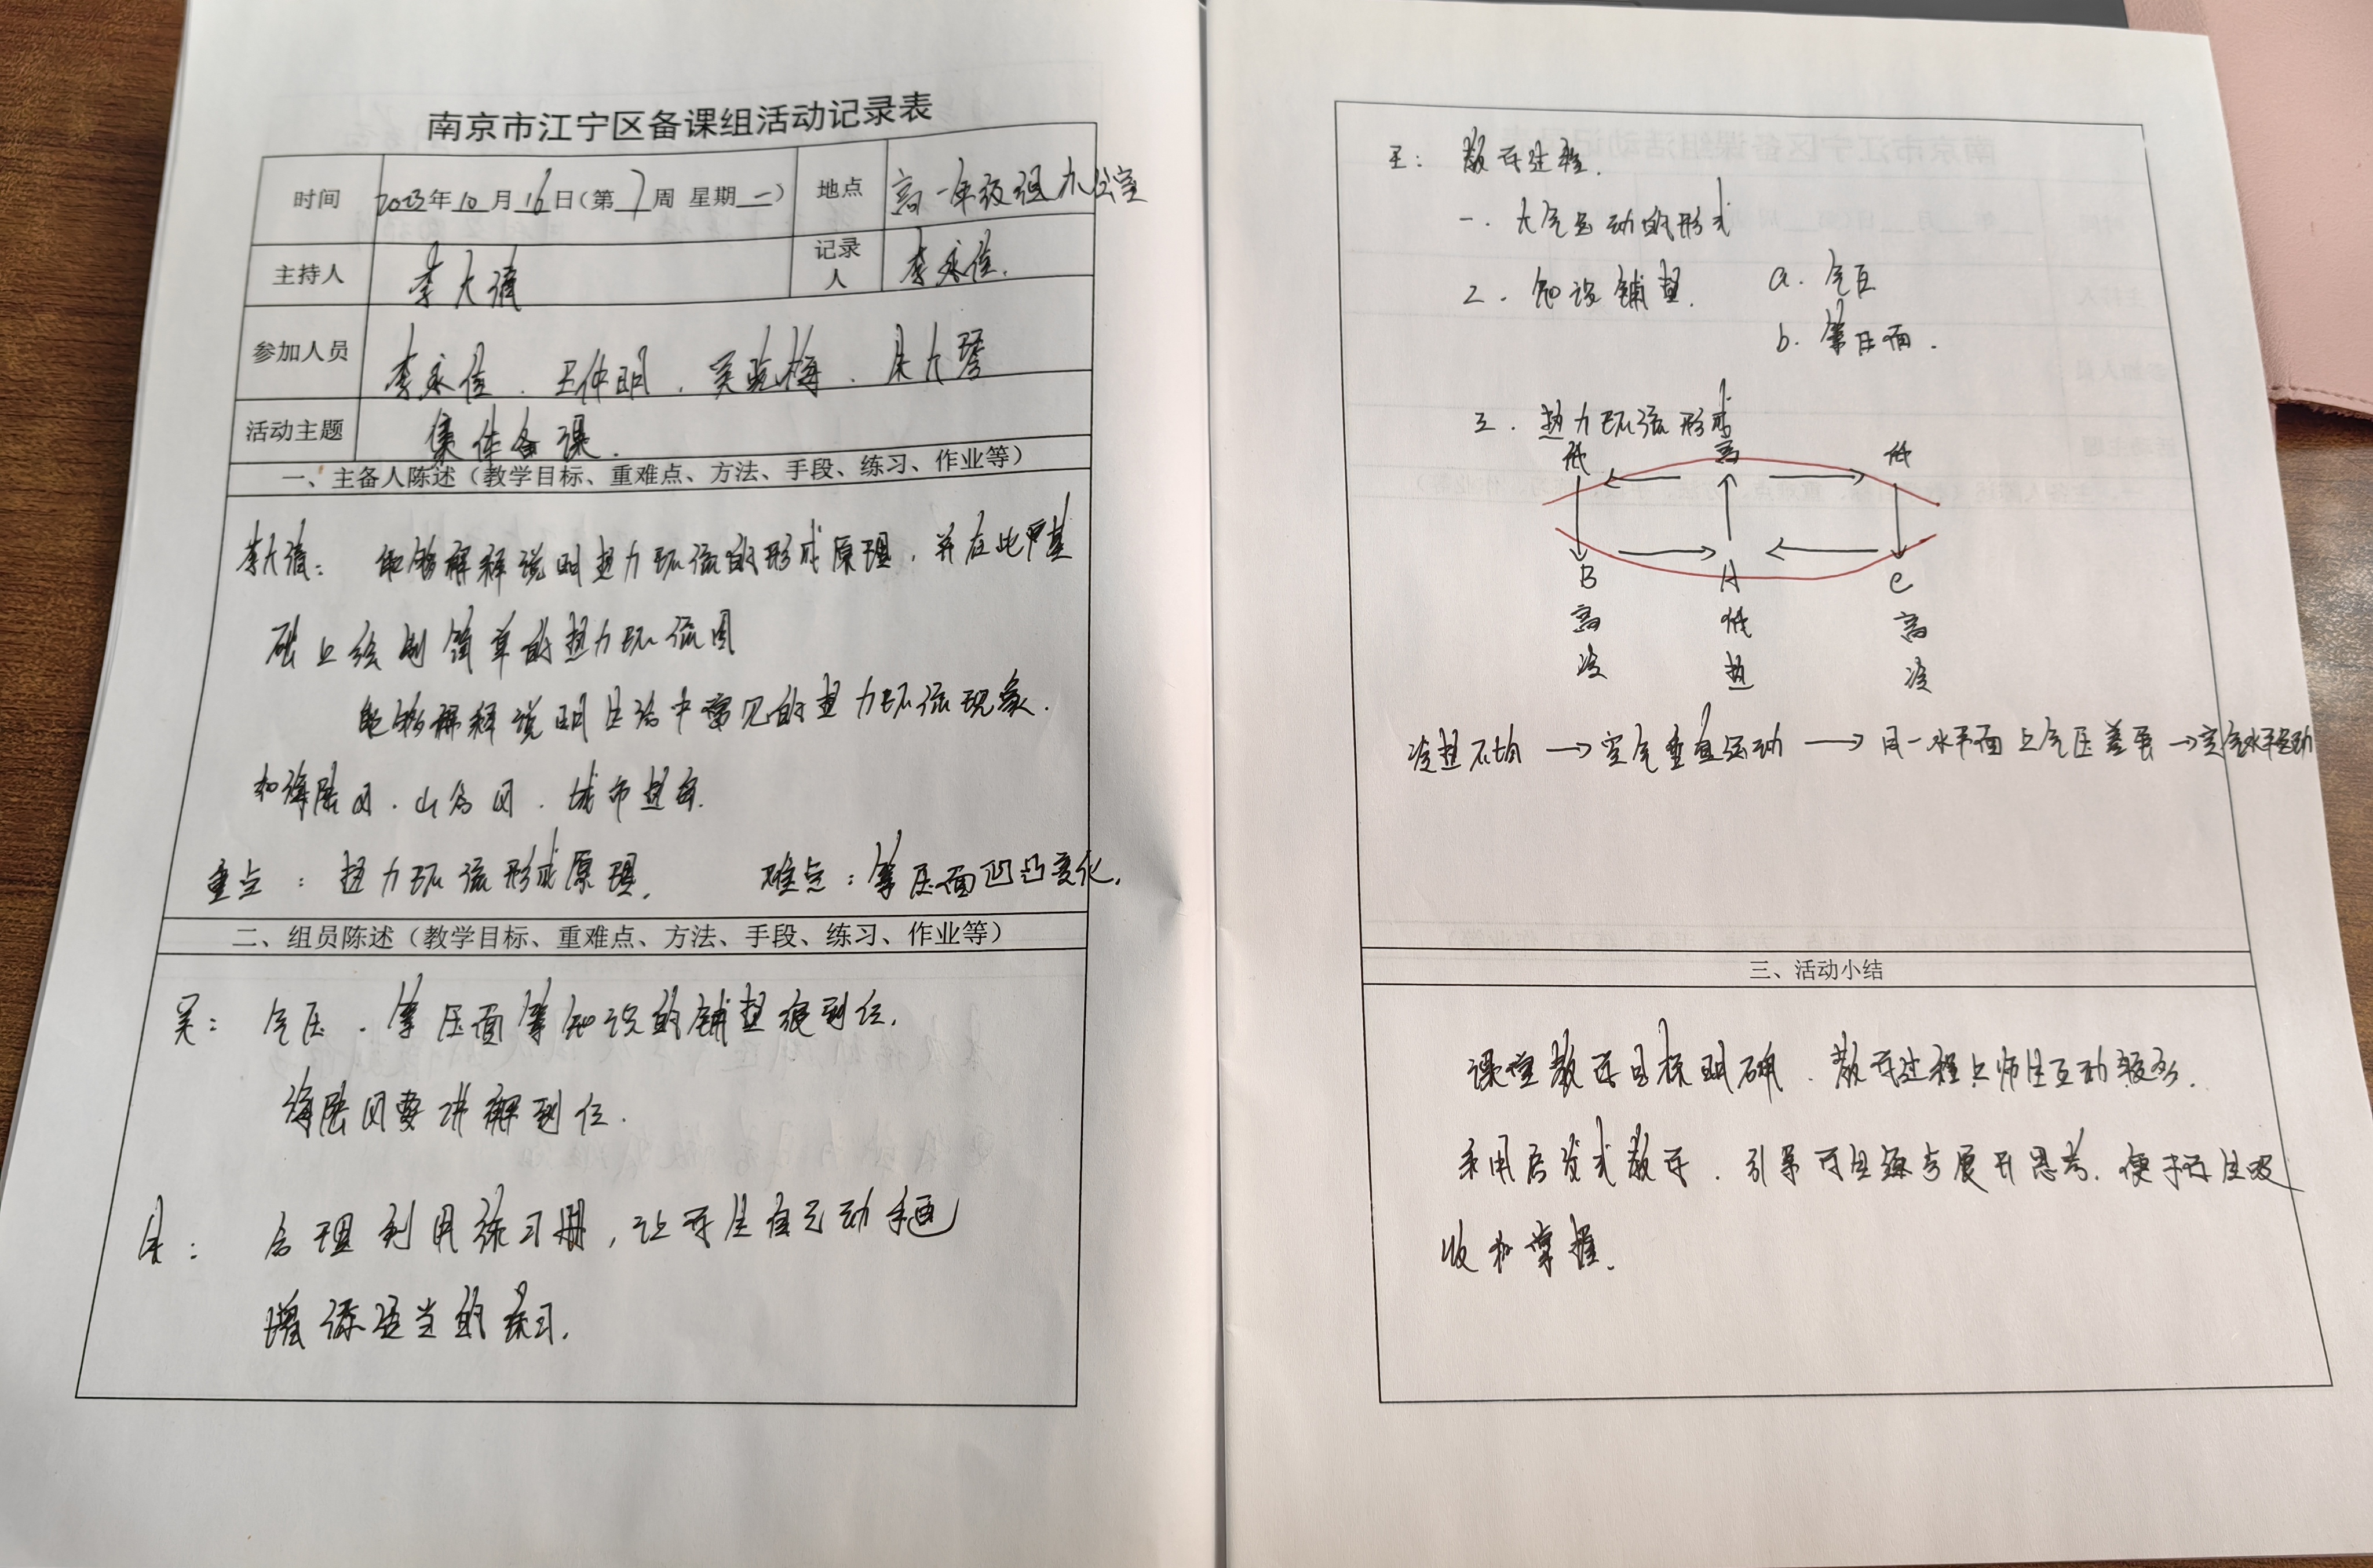 南京市江宁区备课组活动记录表
时间 2023年10月16日(第7周 星期一) 地点 高一年级组办公室
主持人 李大清 记录人 李永佳.
参加人员 李永佳、王仲明、吴晓梅、朱大琴
活动主题 集体备课.
一、主备人陈述(教学目标、重难点、方法、手段、练习、作业等)
李大清: 能够解释说明热力环流的形成原理,并在此基
础上绘制简单的热力环流图
能够解释说明生活中常见的热力环流现象.
如海陆风、山谷风、城市热岛.
重点: 热力环流形成原理. 难点:等压面凹凸变化.
二、组员陈述(教学目标、重难点、方法、手段、练习、作业等)
吴: 气压、等压面等知识的铺垫很到位.
海陆风要讲解到位.
朱: 合理利用练习册,让学生自己动手画
增添适当的练习.
王: 教学过程.
一. 大气运动的形式
二. 知识铺垫. a. 气压
b. 等压面.
三. 热力环流形成
低 高 低
B A C
高 低 高
冷 热 冷
冷热不均 → 空气垂直运动 → 同一水平面上气压差异 → 空气水平运动
三、活动小结
课堂教学目标明确、教学过程上师生互动较多.
采用启发式教学、引导学生参与展开思考、便于学生吸
收和掌握.